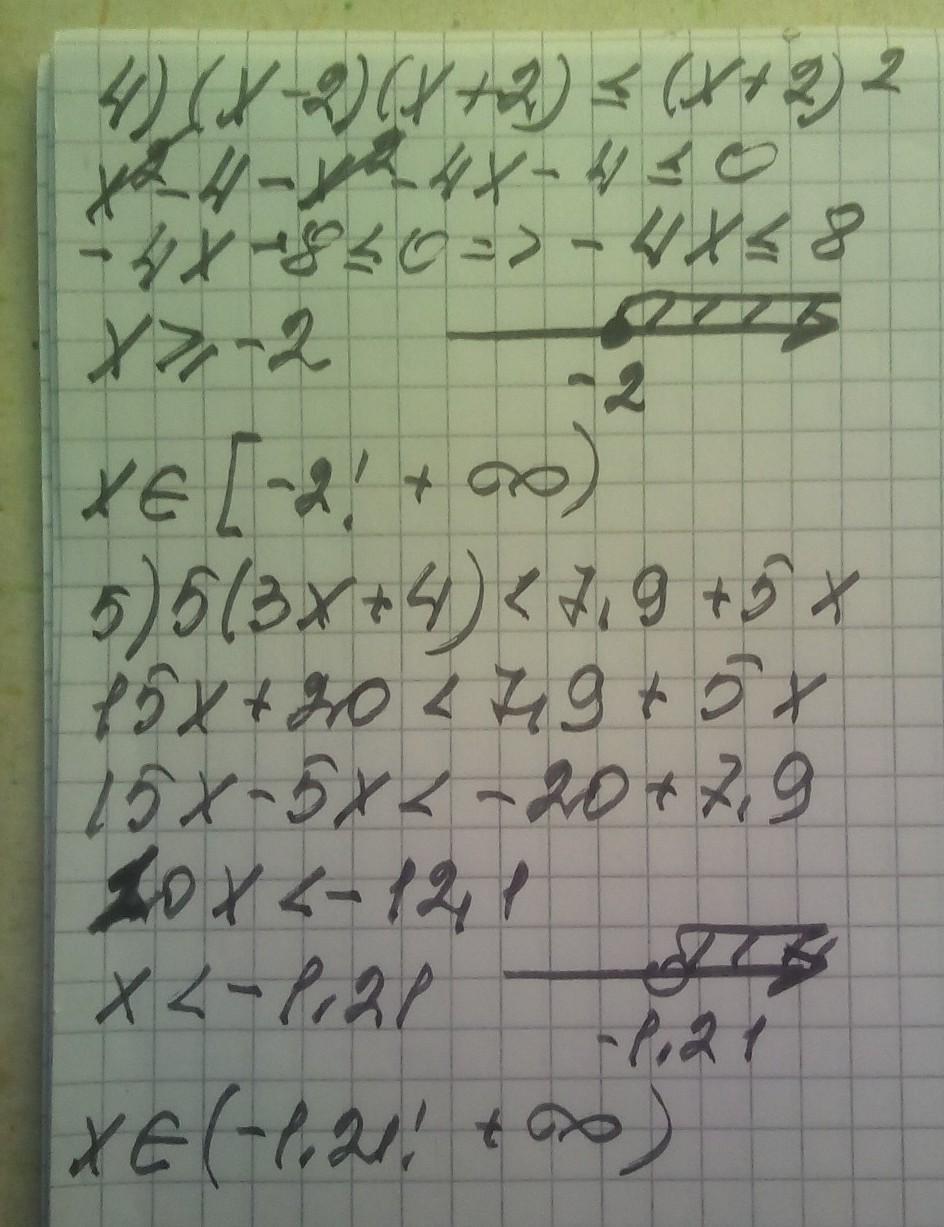 4) (x-2)(x+2) ≤ (x+2)2
x²-4-x²-4x-4 ≤ 0
-4x-8≤0 => -4x≤8
x ⩾ -2
-2
x∈[-2; +∞)
5) 5(3x+4) < 7,9 +5x
15x+20 < 7,9 + 5x
15x-5x < -20 + 7,9
10x < -12,1
x < -1,21
-1,21
x∈(-1,21; +∞)